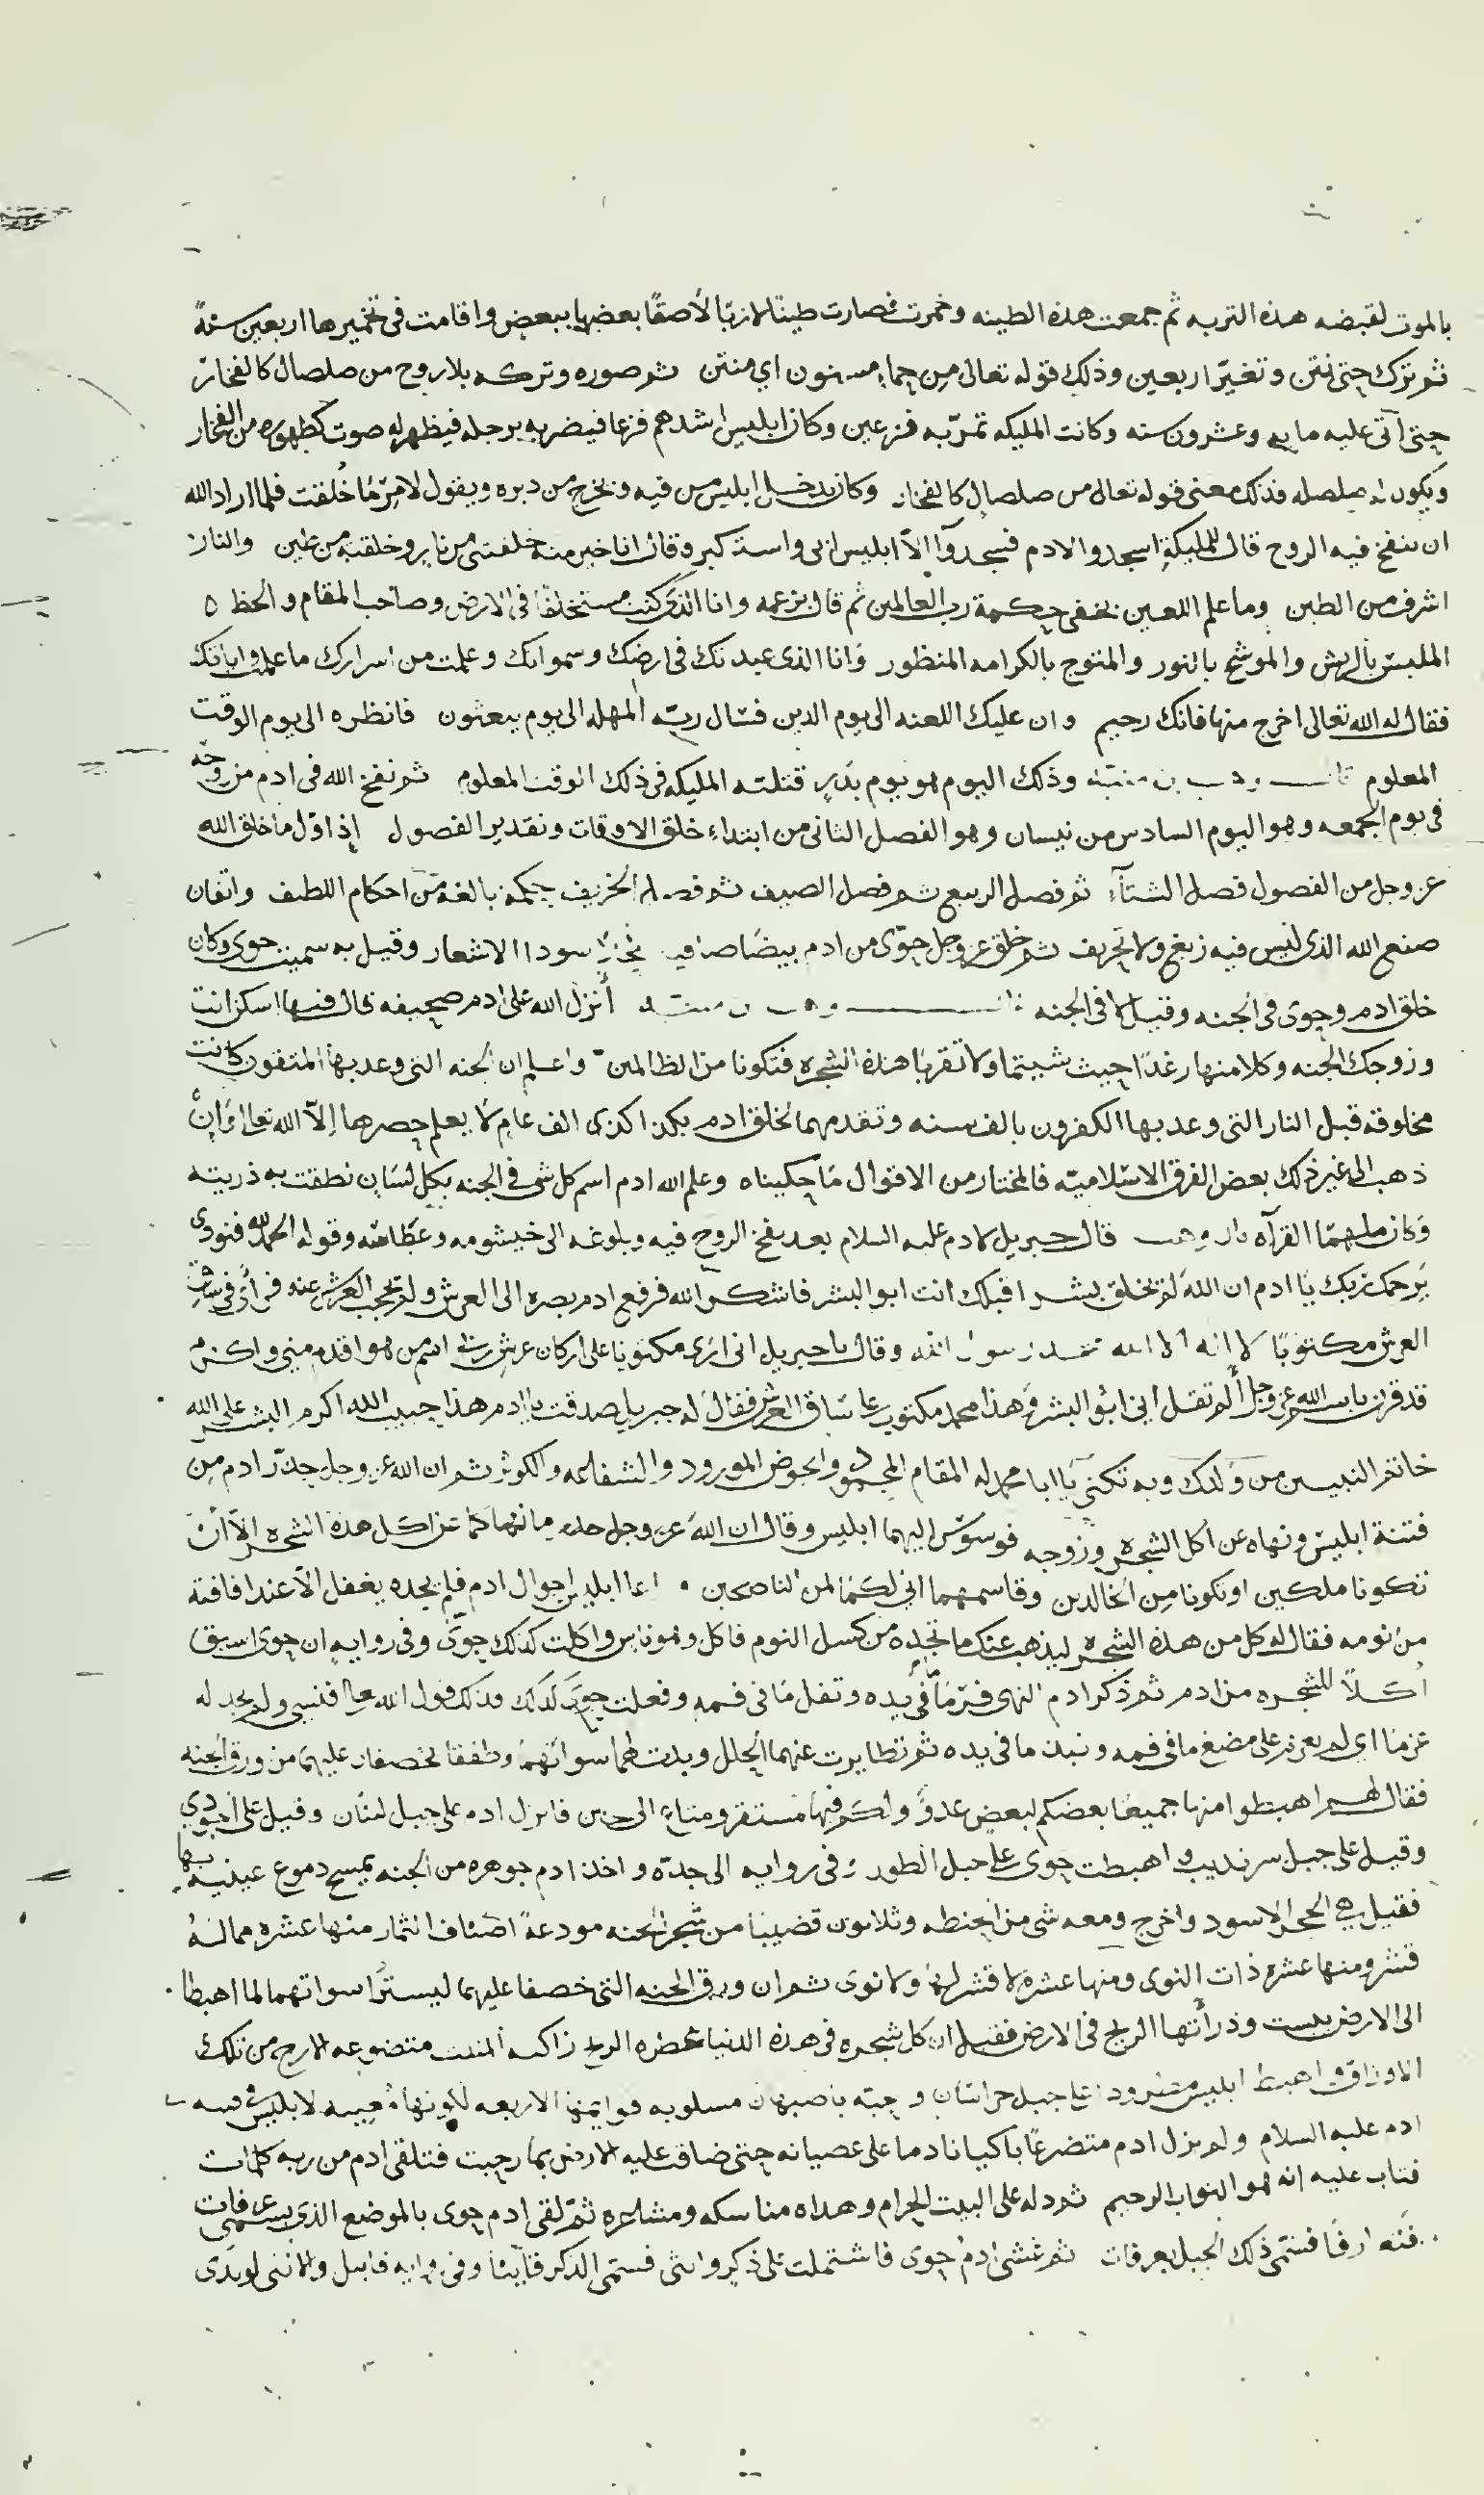 بالموت لقبضه هذه التربه ثم جمعت هذه الطينه وخمرت فصارت طينًا لازبًا لاصقًا بعضها ببعض واقامت فى تخميرها اربعين سنةً
ثم ترك حتى نتن وتغيّر اربعين وذلك قوله تعالى من حماءٍ مسنون اي منتن ثم صوره وتركه بلا روح من صلصال كالفخار
حتى أتى عليه مايه وعشرون سنه وكانت المليكه تمرّ به فزعين وكان ابليس اشدهم فزعا فيضربه برجله فيظهر له صوت كظهوره من الفخار
ويكون له صلصله فذلك معنى قوله تعالى من صلصال كالفخار وكان يدخل ابليس من فيه ويخرج من دبره ويقول لامرٍ مّا خُلقت فلما اراد الله
ان ينفخ فيه الروح قال للمليكةِ اسجدوا لادم فسجدوآ الّا ابليس ابى واستكبر وقال انا خير منه خلقتنى من نارٍ وخلقته من طين والنار
اشرف من الطين وما علم اللعين بخفى حكمة رب العالمين ثم قال بزعمه وانا الذى كنت مستخلفًا فى الارض وصاحب المقام والحظ ٥
الملبس بالريش والموشح بالنور والمتوج بالكرامه المنظور وانا الذى عبدتك فى ارضك وسمواتك وعلمت من اسرارك ما
فقال له الله تعالى اخرج منها فانك رجيم وان عليك اللعنه الى يوم الدين فسال ربّه المهله الى يوم يبعثون فانظره الى يوم الوقت
المعلوم قال وهب بن منبّه وذلك اليوم هو يوم بَدرٍ قتلته المليكه فى ذلك الوقت المعلوم ثم نفخ الله فى ادم من روحه
فى يوم الجمعه وهو اليوم السادس من نيسان وهو الفصل الثانى من ابتداء خلق الاوقات وتقدير الفصول إذ اوّل ما خلق الله
عز وجل من الفصول فصل الشتآء ثم فصل الربيع ثم فصل الصيف ثم فصل الخريف حكمة بالغة من احكام اللطيف واتقان
صنع الله الذى ليس فيه زيغ ولا تحريف ثم خلق عز وجل حوّى من ادم بيضًا صافيه سودا الاشعار وقيل به سميت حوى وكان
خلق ادم وحوى فى الجنه وقيل لا فى الجنه قال وهب بن منبّه أنزل الله على ادم صحيفه قال فيها اسكن انت
وزوجك الجنه وكلا منها رغدًا حيث شيتما ولا تقربا هذه الشجره فتكونا من الظالمين واعلم ان الجنه التى وعد بها المتقون كانت
مخلوقة قبل النار التى وعد بها الكفرون بالف سنه وتقدمهما لخلق ادم بكذا كذى الف عامٍ لا يعلم حصرها إلّا الله تعالى وَإنْ
ذهب الى غير ذلك بعض الفرق الاسلاميّه فالمختار من الاقوال ما حكيناه وعلم الله ادم اسم كل شى فى الجنه بكل لسان نطقت به ذريته
وكان ملهمًا القرآه قال وهب قال جبريل لادم عليه السلام بعد نفخ الروح فيه وبلوغه الى خيشومه وعطاسه وقوله الحمد لله فنودى
يَرحمك ربّك يا ادم ان الله لم يخلق بشرا قبلك انت ابو البشر فاشكر الله فرفع ادم بصره الى العرش ولم يحجب العرش عنه فرأى فى ساق
العرش مكتوبًا لا اله الا الله محمد رسول الله وقال يا جبريل انى ارى مكتوبا على اركان عرش ربى اسم من هو اقدم منى واكرم
قد قرن باسم الله عز وجل ألم تقل انى ابُو البشر وَهذا محمد مكتوب على ساق العرش فقال له جبريل صدقت يا ادم هذا حبيب الله اكرم البشر على الله
خاتم النبيين من وَلدك وبه تكنى يا ابا محمد له المقام المحمود والحوض المورود والشفاعه والكوثر ثم ان الله عز وجل حذّر ادم من
فتنة ابليس ونهاه عن اكل الشجره وزوجه فوسوس اليهما ابليس وقال ان الله عز وجل ما نهاكما عن اكل هذه الشجره الّا انْ
تكونا ملكين او تكونا من الخالدين وقاسمهما انى لكما لمن الناصحين ابليس احوال ادم فلم يجده يغفل الّا عند افاقته
من نومه فقال له كل من هذه الشجره ليذهب عنك ما تجده من كسل النوم فاكل وهو ناس واكلت كذلك حوّى وفى روايه ان حوى اسبق
أكلاً للشجره من ادم ثم ذكر ادم النهى فرَمى مَا فى يده وتفل مَا فى فمه وفعلت حوى كذلك وذلك قول الله تعالى فنسى ولم نجد له
عزمًا اى لم يعزم على مضغ ما فى فمه ونبذ ما فى يده ثم تطايرت عنهما الحلل وبدت لهما سواتهما وطفقا يخصفان عليهما من ورق الجنه
فقال لهم اهبطوا منها جميعًا بعضكم لبعض عدوّ ولكم فيها مستقر ومتاع الى حين فانزل ادم على جبل لبنان وقيل على الجودي
وقيل على جبل سرنديب واهبطت حوى على جبل الطور وفى روايه الى جدّه واخذ ادم جوهره من الجنه يمسح دموع عينيه بها
فقيل هى الحجر الاسود واخرج ومعه شى من الحنطه وثلاثون قضيبًا من شجر الجنه مودعةً اصناف الثمار منها عشره مما لهُ
قشر ومنها عشره ذات النوى ومنها عشره لا قشر لها ولا نوى ثم ان ورق الجنه التى خصفا عليهما ليسترا سواتهما لما اهبطا
الى الارض يبست وذرأتها الريح فى الارض فقيل ان كل شجره فى هذه الدنيا عطره الريح زاكيه المنبت متضوعه الارج من تلك
الاوراق واهبط ابليس على جبل خراسان وحيته باصبهان مسلوبه قوايمها الاربعه لكونها معينه لابليس فى
ادم عليه السلام ولم يزل ادم متضرعًا باكيا نادما على عصيانه حتى ضاقت عليه الارض بما رحبت فتلقى ادم من ربه كلمات
فتاب عليه انه هو التواب الرحيم ثم دله على البيت الحرام وهداه مناسكه ومشاعره ثم لقى ادم حوى بالموضع الذى يسمى عرفات
فسمّى ذلك الجبل بعرفات ثم غشى ادمُ حوى فاشتملت على ذكر وانثى فسمّى الذكر قايِنًا وفى روايه قابيل والانثى لوبدى